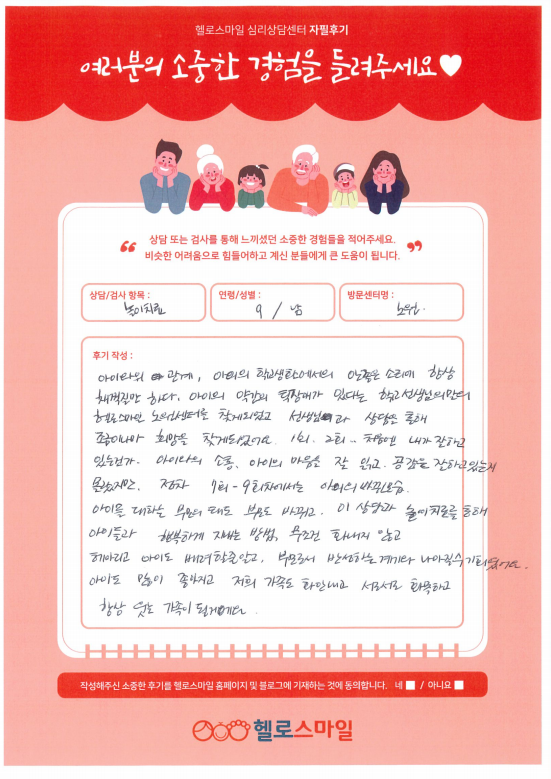 헬로스마일 심리상담센터 자필후기
여러분의 소중한 경험을 들려주세요
“ 상담 또는 검사를 통해 느끼셨던 소중한 경험들을 적어주세요.
비슷한 어려움으로 힘들어하고 계신 분들에게 큰 도움이 됩니다. ”
상담/검사 항목 : 놀이치료
연령/성별 : 9 / 남
방문센터명 : 노원
후기 작성 :
아이와의 관계, 아이의 학교생활에서의 안좋은 소리에 항상
하다. 아이의 약간의 있다는 학교선생님의
헬로스마일 노원센터를 찾게되었고 선생님과 상담을 통해
조금이나마 희망을 찾게되었어요. 1회. 2회.. 처음엔 내가 잘하고
있는건가. 아이와의 소통. 아이의 마음을 잘 읽고. 공감을 잘하고있는지
몰랐지만. 점차 7회-9회차에서는 아이의 바뀐모습.
아이를 대하는 부모의 태도 부모도 바뀌고. 이 상담과 놀이치료를 통해
아이들과 행복하게 지내는 방법, 무조건 화내지 않고
헤아리고 아이도 배려할줄알고, 부모로서 반성하는 계기와 나아질수 기회였어요.
아이도 많이 좋아지고 저희 가족도 화안내고 서로서로 화목하고
항상 웃는 가족이 될게에다.
작성해주신 소중한 후기를 헬로스마일 홈페이지 및 블로그에 기재하는 것에 동의합니다. 네 / 아니요
헬로스마일